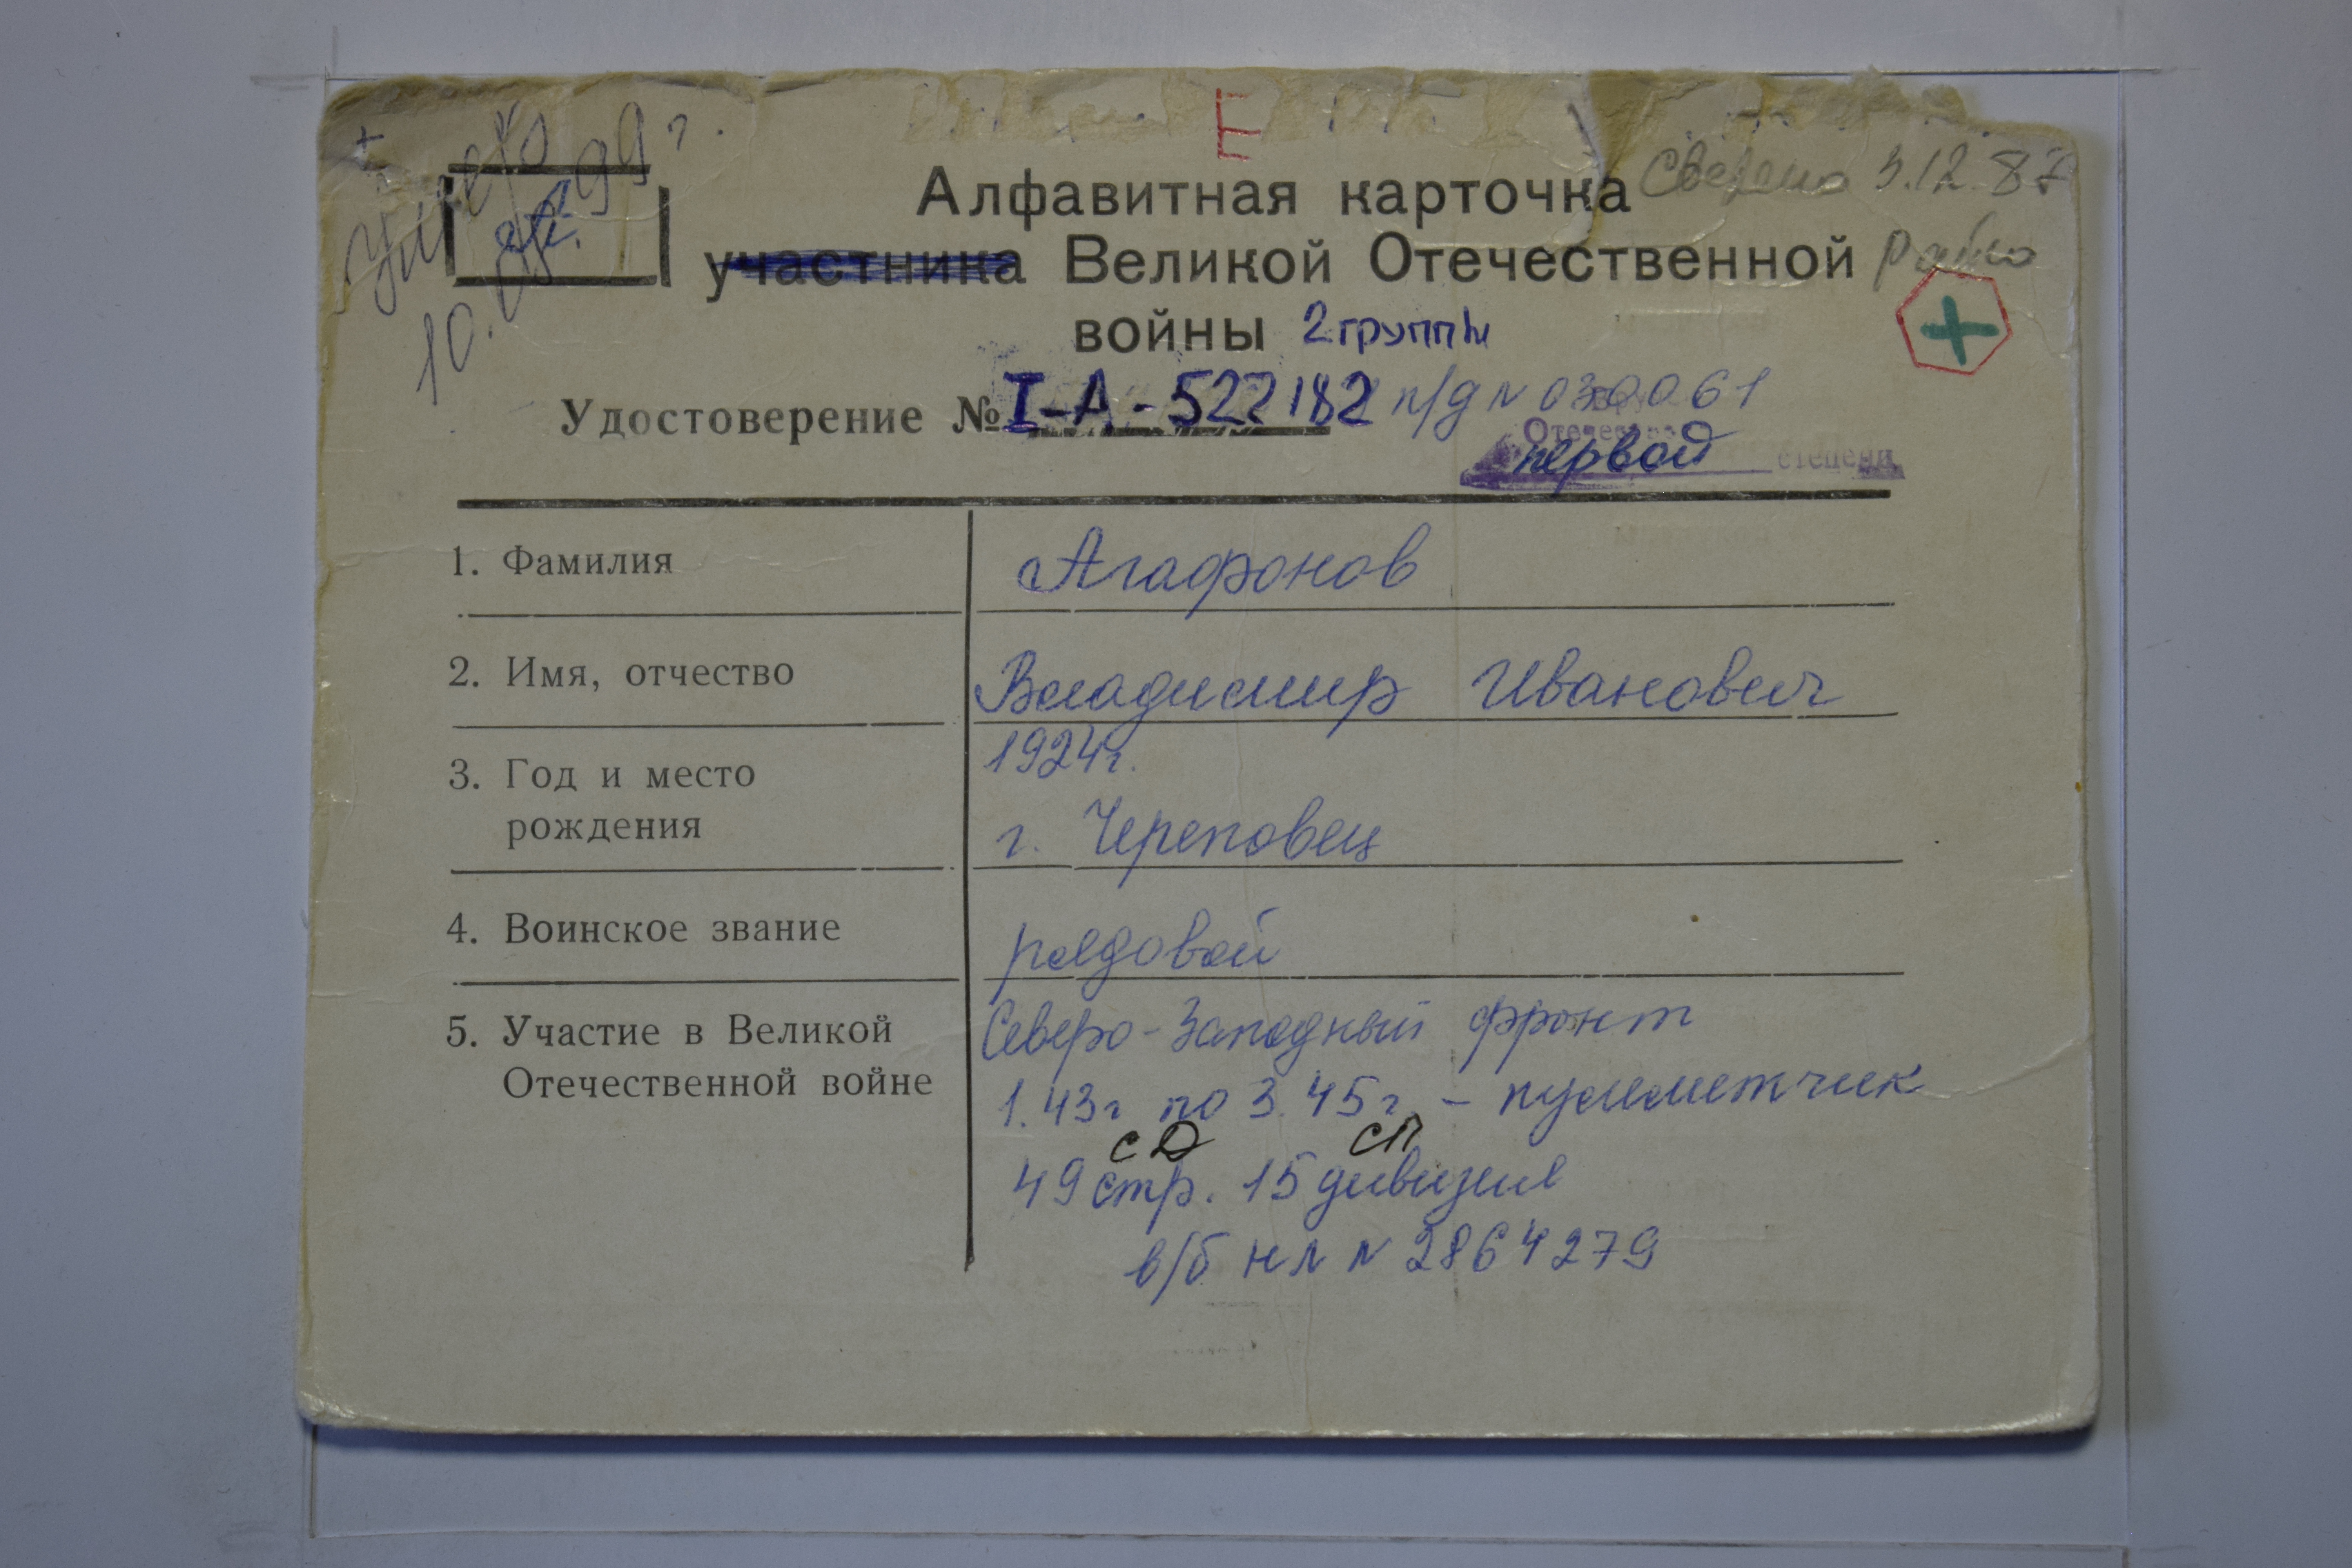 Е
Умер
10.05.99 г.
Сверено 3.12.87
Алфавитная карточка
участника Великой Отечественной
войны 2 группы
Удостоверение № I-А-522182 п/д № 030061
Отечес
первой степени
1. Фамилия Агафонов
2. Имя, отчество Владимир Иванович
3. Год и место 1924г.
рождения г. Череповец
4. Воинское звание рядовой
5. Участие в Великой Северо-Западный фронт
Отечественной войне 1.43г по 3.45г. – пулеметчик
СД СП
49 стр. 15 дивизия
в/б НЛ № 2864279